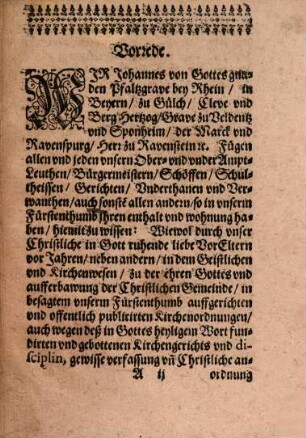 Vorrede.
WIR Johannes von Gottes gna-
den Pfaltzgrave bey Rhein / in
Beyern / zu Gülch / Cleve vnd
Berg Hertzog / Grave zu Veldentz
vnd Sponheim / der Marck vnd
Ravenspurg / Herr zu Ravenstein ꝛc. Fügen
allen vnd jeden vnsern Ober- vnd vnder Ampt-
Leuthen / Bürgermeistern / Schöffen / Schul-
theissen / Gerichten / Vnderthanen vnd Ver-
wanthen / auch sonstē allen andern / so in vnserm
Fürstenthumb Ihren enthalt vnd wohnung ha-
ben / hiemit zu wissen: Wiewol durch vnser
Christliche in Gott ruhende liebe VorEltern
vor Jahren / neben andern / in dem Geistlichen
vnd Kirchenwesen / zu der ehren Gottes vnd
aufferbawung der Christlichen Gemeinde / in
besagtem vnserm Fürstenthumb auffgerichten
vnd offentlich publicirten Kirchenordnungen /
auch wegen deß in Gottes heyligem Wort fun-
dirten vnd gebottenen Kirchengerichts vnd di-
sciplin, gewisse verfassung vñ Christliche an-
A ij ordnung